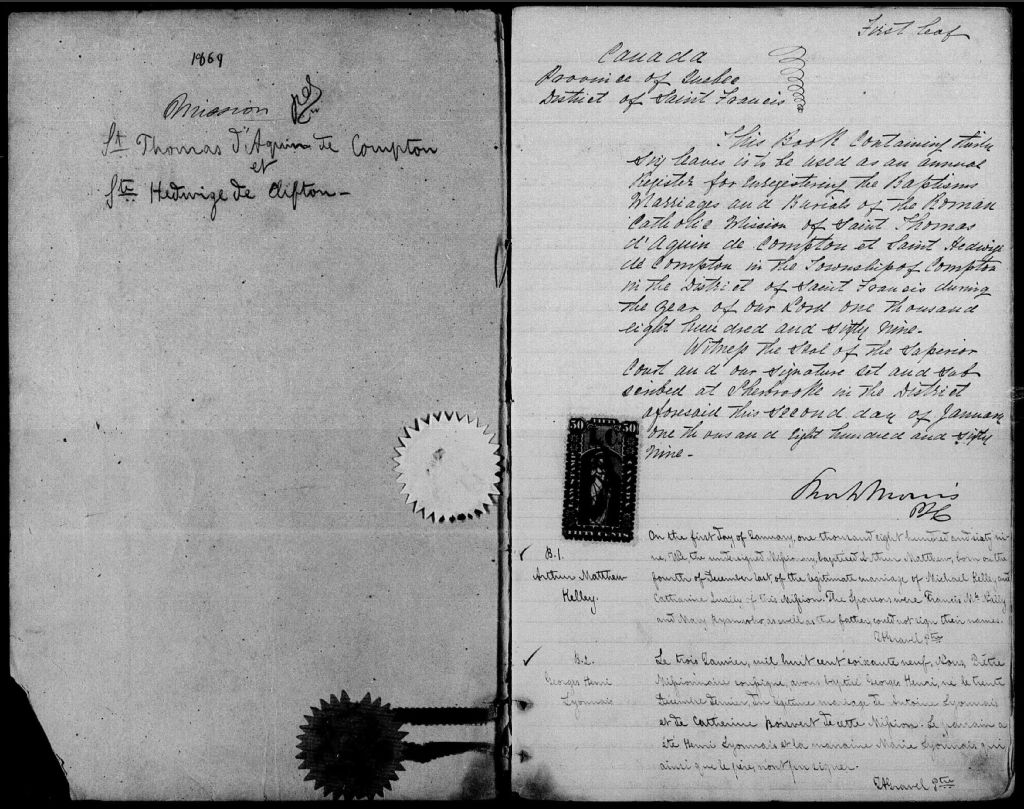 1869
Mission
St Thomas d'Aquin de Compton
et
Ste Hedwige de Clifton -
First leaf
Canada
Province of Quebec
District of Saint Francis
This Book Containing thirty
six leaves is to be used as an annual
Register for Enregistering the Baptisms
Marriages and Burials of the Roman
Catholic Mission of Saint Thomas
d'Aquin de Compton et Saint Hedwige
de Compton in the Township of Compton
in the District of Saint Francis during
the year of our Lord one thousand
eight hundred and sixty nine.
Witness the Seal of the Superior
Court and our signature set and sub
scribed at Sherbrooke in the District
aforesaid this second day of January
one thousand eight hundred and sixty
nine -
50 50
FIFTY CENTS
B.1.
Arthur Matthew
Kelley.
On the first day of January, one thousand eight hundred and sixty ni-
ne, We the undersigned Missionary, baptized Arthur Matthew, born on the
fourth of December last of the legitimate marriage of Michael Kelley and
Catharine of this Mission. The Sponsors were Francis
and Mary Ryan who as well as the father, could not sign their names.
B.2.
Georges Henri
Lyonnais
Le trois Janvier, mil huit cent soixante neuf, Nous, Prêtre
Missionnaire soussigné, avons baptisé Georges Henri, né le trente
Décembre dernier, du légitime mariage de Antoine Lyonnais
et de Catherine Boisvert de cette Mission. Le parrain a
été Henri Lyonnais et la marraine Marie Lyonnais qui
ainsi que le père, n'ont pu signer.